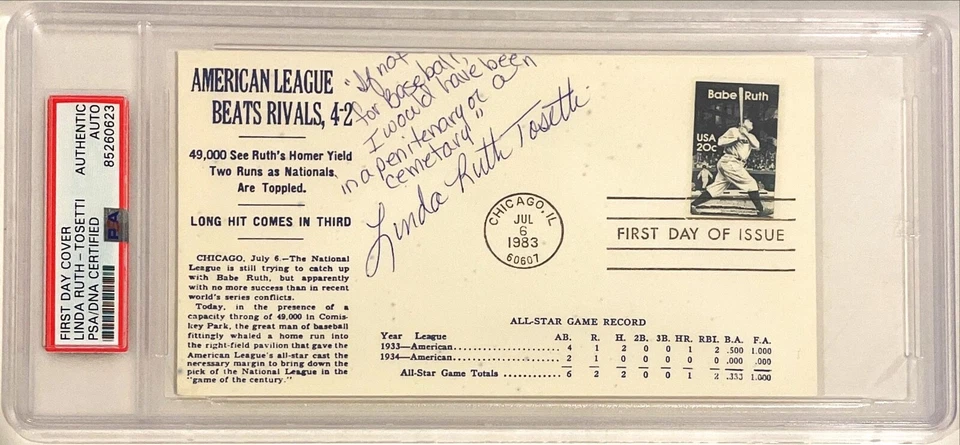 FIRST DAY COVER
LINDA RUTH-TOSETTI
PSA/DNA CERTIFIED
AUTHENTIC
AUTO
85260623
PSA
AMERICAN LEAGUE
BEATS RIVALS, 4-2
49,000 See Ruth's Homer Yield
Two Runs as Nationals
Are Toppled.
LONG HIT COMES IN THIRD
CHICAGO, July 6.—The National
League is still trying to catch up
with Babe Ruth, but apparently
with no more success than in recent
world's series conflicts.
Today, in the presence of a
capacity throng of 49,000 in Comis-
key Park, the great man of baseball
fittingly whaled a home run into
the right-field pavilion that gave the
American League's all-star cast the
necessary margin to bring down the
pick of the National League in the
"game of the century."
"If not
for baseball,
I would have been
in a penitenary or a
cemetary"
Linda Ruth Tosetti
CHICAGO, IL
JUL
6
1983
60607
Babe Ruth
USA
20c
FIRST DAY OF ISSUE
ALL-STAR GAME RECORD
Year League AB. R. H. 2B. 3B. HR. RBI. B.A. F.A.
1933—American 4 1 2 0 0 1 2 .500 1.000
1934—American 2 1 0 0 0 0 0 .000 .000
All-Star Game Totals 6 2 2 0 0 1 2 .333 1.000